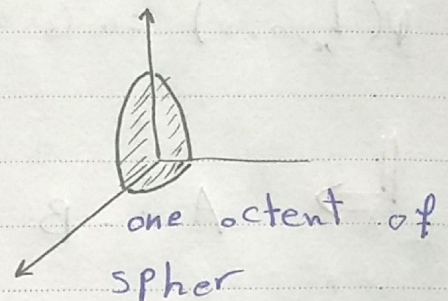 one octent of
spher